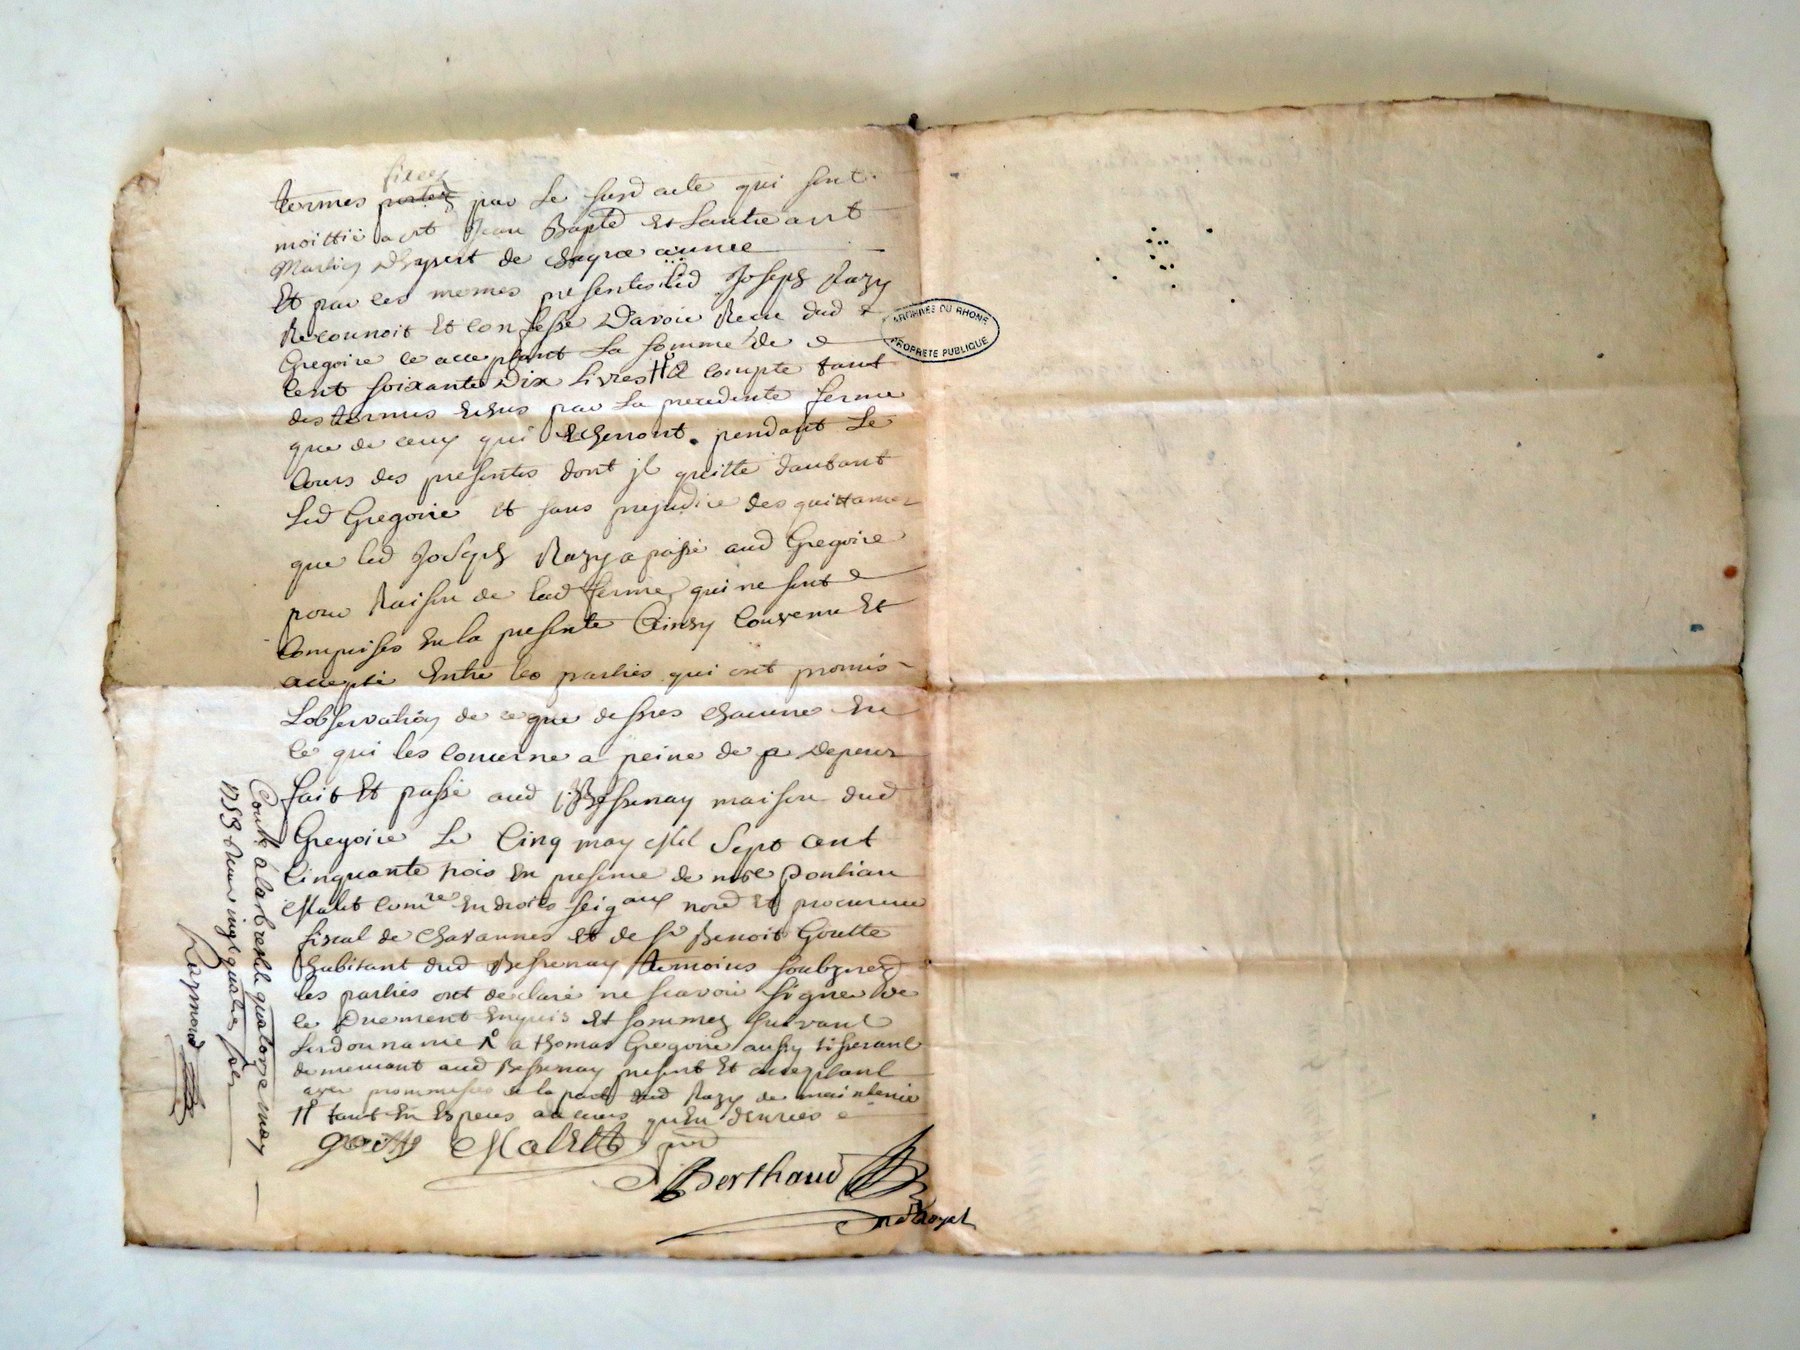 fixes
termes portez par le susd acte qui sont
moittié a st Jean Bapte Et Lautre a st
Martin dhyvert de chaque année
Et par ces memes presentes led Joseph Razy
Reconnoit Et confesse Davoir Recu dud
Gregoire ce acceptant La somme de
Cent soixante Dix Livres # a compte tant
des termes Echus par La precedente ferme
que de ceux qui Echerront pendant Le
Cours des presentes dont jl quitte dautant
Led Gregoire et sans prejudice des quittances
que led Joseph Razy a passé aud Gregoire
pour Raison de lad ferme qui ne sont
Comprises En la presente Ainsy Convenu Et
accepté Entre les parties qui ont promis
Lobservation de ce que dessus chacune En
ce qui les concerne a peine de Depens
fait Et passé aud Bessenay maison dud
Gregoire Le Cinq may Mil Sept Cent
Cinquante trois En presence de Ponthian
Malet comre En droits seigaux nord Et procureur
fiscal de Chavannes et de sr Benoit Goutte
habitant dud Bessenay temoins soubznez
les parties ont declaré ne scavoir signer de
ce Duement Enquis Et sommez suivant
Lordonnance # a thomas Gregoire aussy tisserant
demeurant aud Bessenay present Et acceptant
avec promesses de la part dud Razy de maintenir
# tant En Especes au cours quEn denrées
goutte Malet
Berthaud
no Royal
Conté a Larbresle quatorze may
1753 Recu vingt quatre sols
Raymond
ARCHIVES DU RHONE
PROPRIETE PUBLIQUE